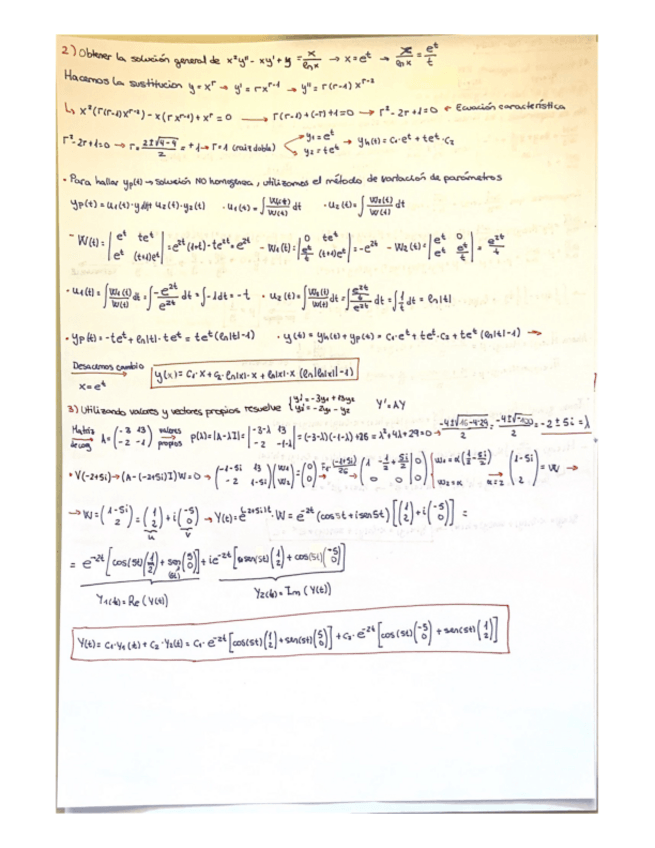 2) Obtener la solución general de x²y'' - xy' + y = x/ln x → x = e^t → x/ln x = e^t/t
Hacemos la sustitución y = x^r → y' = r x^(r-1) → y'' = r(r-1) x^(r-2)
↳ x²(r(r-1)x^(r-2)) - x(r x^(r-1)) + x^r = 0 → r(r-1) + (-r) + 1 = 0 → r² - 2r + 1 = 0 ← Ecuación característica
r² - 2r + 1 = 0 → r = (2 ± √(4-4))/2 = +1 → r = 1 (raíz doble) y₁ = e^t y₂ = te^t → yh(t) = c₁·e^t + te^t·c₂
• Para hallar yp(t) → Solución NO homogénea, utilizamos el método de variación de parámetros
yp(t) = u₁(t)·y₁(t) + u₂(t)·y₂(t) · u₁(t) = ∫ W₁(t)/W(t) dt · u₂(t) = ∫ W₂(t)/W(t) dt
- W(t) = |e^t te^t; e^t (1+t)e^t| = e^2t(1+t) - te^2t = e^2t - W₁(t) = |0 te^t; e^t/t (t+1)e^t| = -e^2t - W₂(t) = |e^t 0; e^t e^t/t| = e^2t/t
• u₁(t) = ∫ W₁(t)/W(t) dt = ∫ -e^2t/e^2t dt = ∫ -1 dt = -t • u₂(t) = ∫ W₂(t)/W(t) dt = ∫ (e^2t/t)/e^2t dt = ∫ 1/t dt = ln|t|
• yp(t) = -te^t + ln|t|·te^t = te^t(ln|t| - 1) • y(t) = yh(t) + yp(t) = c₁·e^t + te^t·c₂ + te^t(ln|t| - 1) →
Desacemos cambio
x = e^t
y(x) = c₁·x + c₂·ln|x|·x + ln|x|·x (ln|ln|x|| - 1)
3) Utilizando valores y vectores propios resuelve {y₁' = -3y₁ + 13y₂; y₂' = -2y₁ - y₂ Y' = AY
Matriz de coef A = (-3 13; -2 -1) valores propios p(λ) = |A - λI| = |-3-λ 13; -2 -1-λ| = (-3-λ)(-1-λ) + 26 = λ² + 4λ + 29 = 0 → (-4 ± √(16-4·29))/2 = (-4 ± √-100)/2 = -2 ± 5i = λ
• V(-2+5i) → (A - (-2+5i)I)W = 0 → (-1-5i 13; -2 1-5i)(W₁; W₂) = (0; 0) → (1 -1/2 + 5i/2 | 0; 0 0 | 0) {W₁ = α(1/2 - 5i/2); W₂ = α → α = 2 (1-5i; 2) = W →
→ W = (1-5i; 2) = (1; 2) + i(-5; 0) → Y(t) = e^(-2+5i)t · W = e^-2t (cos5t + i sen5t) [(1; 2) + i(-5; 0)] =
u v
= e^-2t [cos(5t)(1; 2) + sen(5t)(5; 0)] + ie^-2t [sen(5t)(1; 2) + cos(5t)(-5; 0)]
Y₁(t) = Re(Y(t)) Y₂(t) = Im(Y(t))
Y(t) = c₁·Y₁(t) + c₂·Y₂(t) = c₁·e^-2t [cos(5t)(1; 2) + sen(5t)(5; 0)] + c₂·e^-2t [cos(5t)(-5; 0) + sen(5t)(1; 2)]